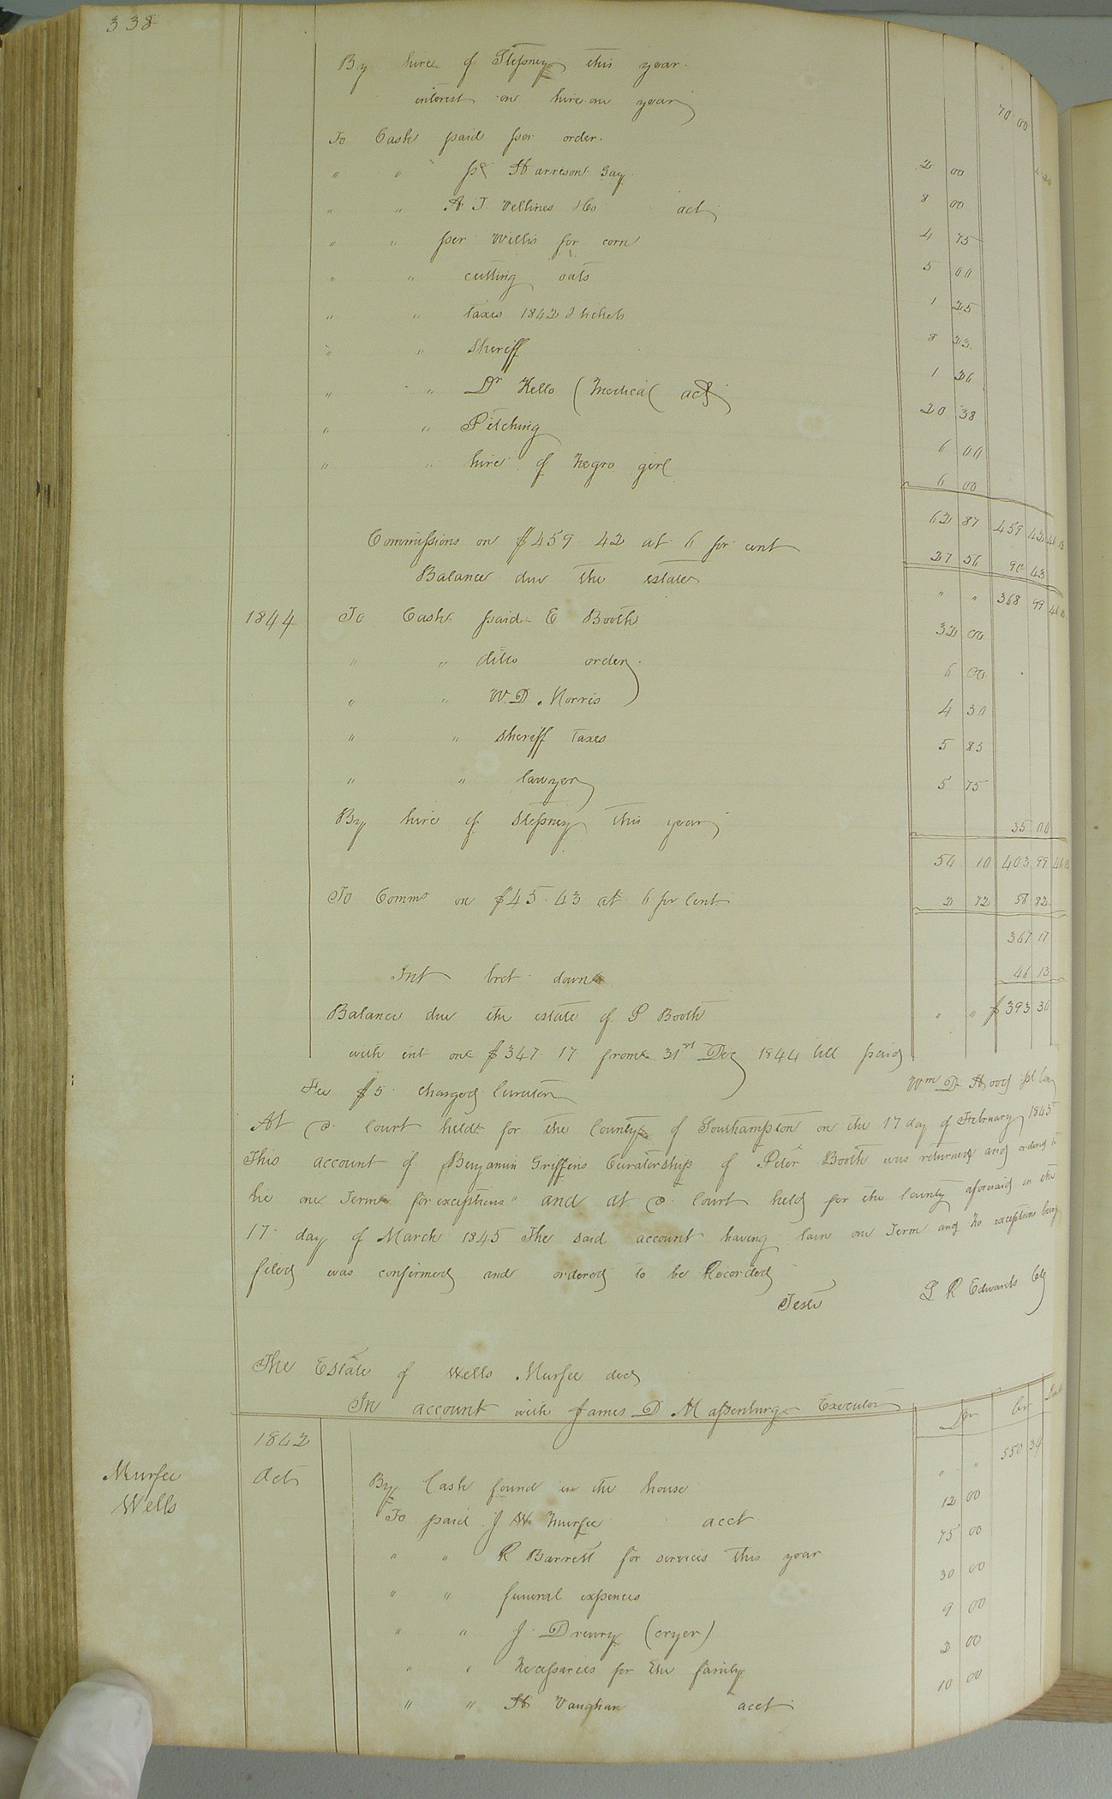 338
By hire of Stepney this year 70 00
interest on hire one year
To Cash paid per order. 2 00
" " pd Harreson Gay 8 00
" " A T Vellines &Co act 4 75
" " per Willis for corn 5 00
" " cutting oats 1 25
" " taxes 1842 & tickets 8 23
" " Sheriff 1 26
" " Dr Kello (Medical act) 20 38
" " Pitching 6 00
" " hire of Negro girl 6 00
62 87 459 42
Commissions on $459 42 at 6 per cent 27 56 90 43
Balance due the estate " " 368 99
1844 To Cash paid E Booth 32 00
" " ditto order 6 00
" " W. D. Norris 4 50
" " sheriff Taxes 5 85
" " lawyer 5 75
By hire of Stepney this year 35 00
54 10 403 99
To Comms on $45.43 at 6 per Cent 2 72 56 82
347 17
Int brot down 46 13
Balance due the estate of P Booth " " $393 30
with int on $347.17 from 31st Dec 1844 till paid
Fee $5 charged Curator Wm D Hood
At a court held for the County of Southampton on the 17 day of February 1845
This account of Benjamin Griffins Curatorship of Peter Booth was returned and ordered to
lie one Term for exceptions" and at a court held for the County aforesaid on the
17 day of March 1845 The said account having lain one Term and no exceptions being
filed was confirmed and ordered to be Recorded
Teste L R Edwards Clk
The Estate of Wells Murfee decd
In account with James D Massenburg Executor Dr Cr
1842
Murfee Wells
Oct By Cash found in the house " " 550 34
To paid J W Murfee acct 12 00
" " R Barrett for services this year 75 00
" " funeral expences 30 00
" " J. Drewry (cryer) 9 00
" " Necessaries for the family 2 00
" " H Vaughan acct 10 00